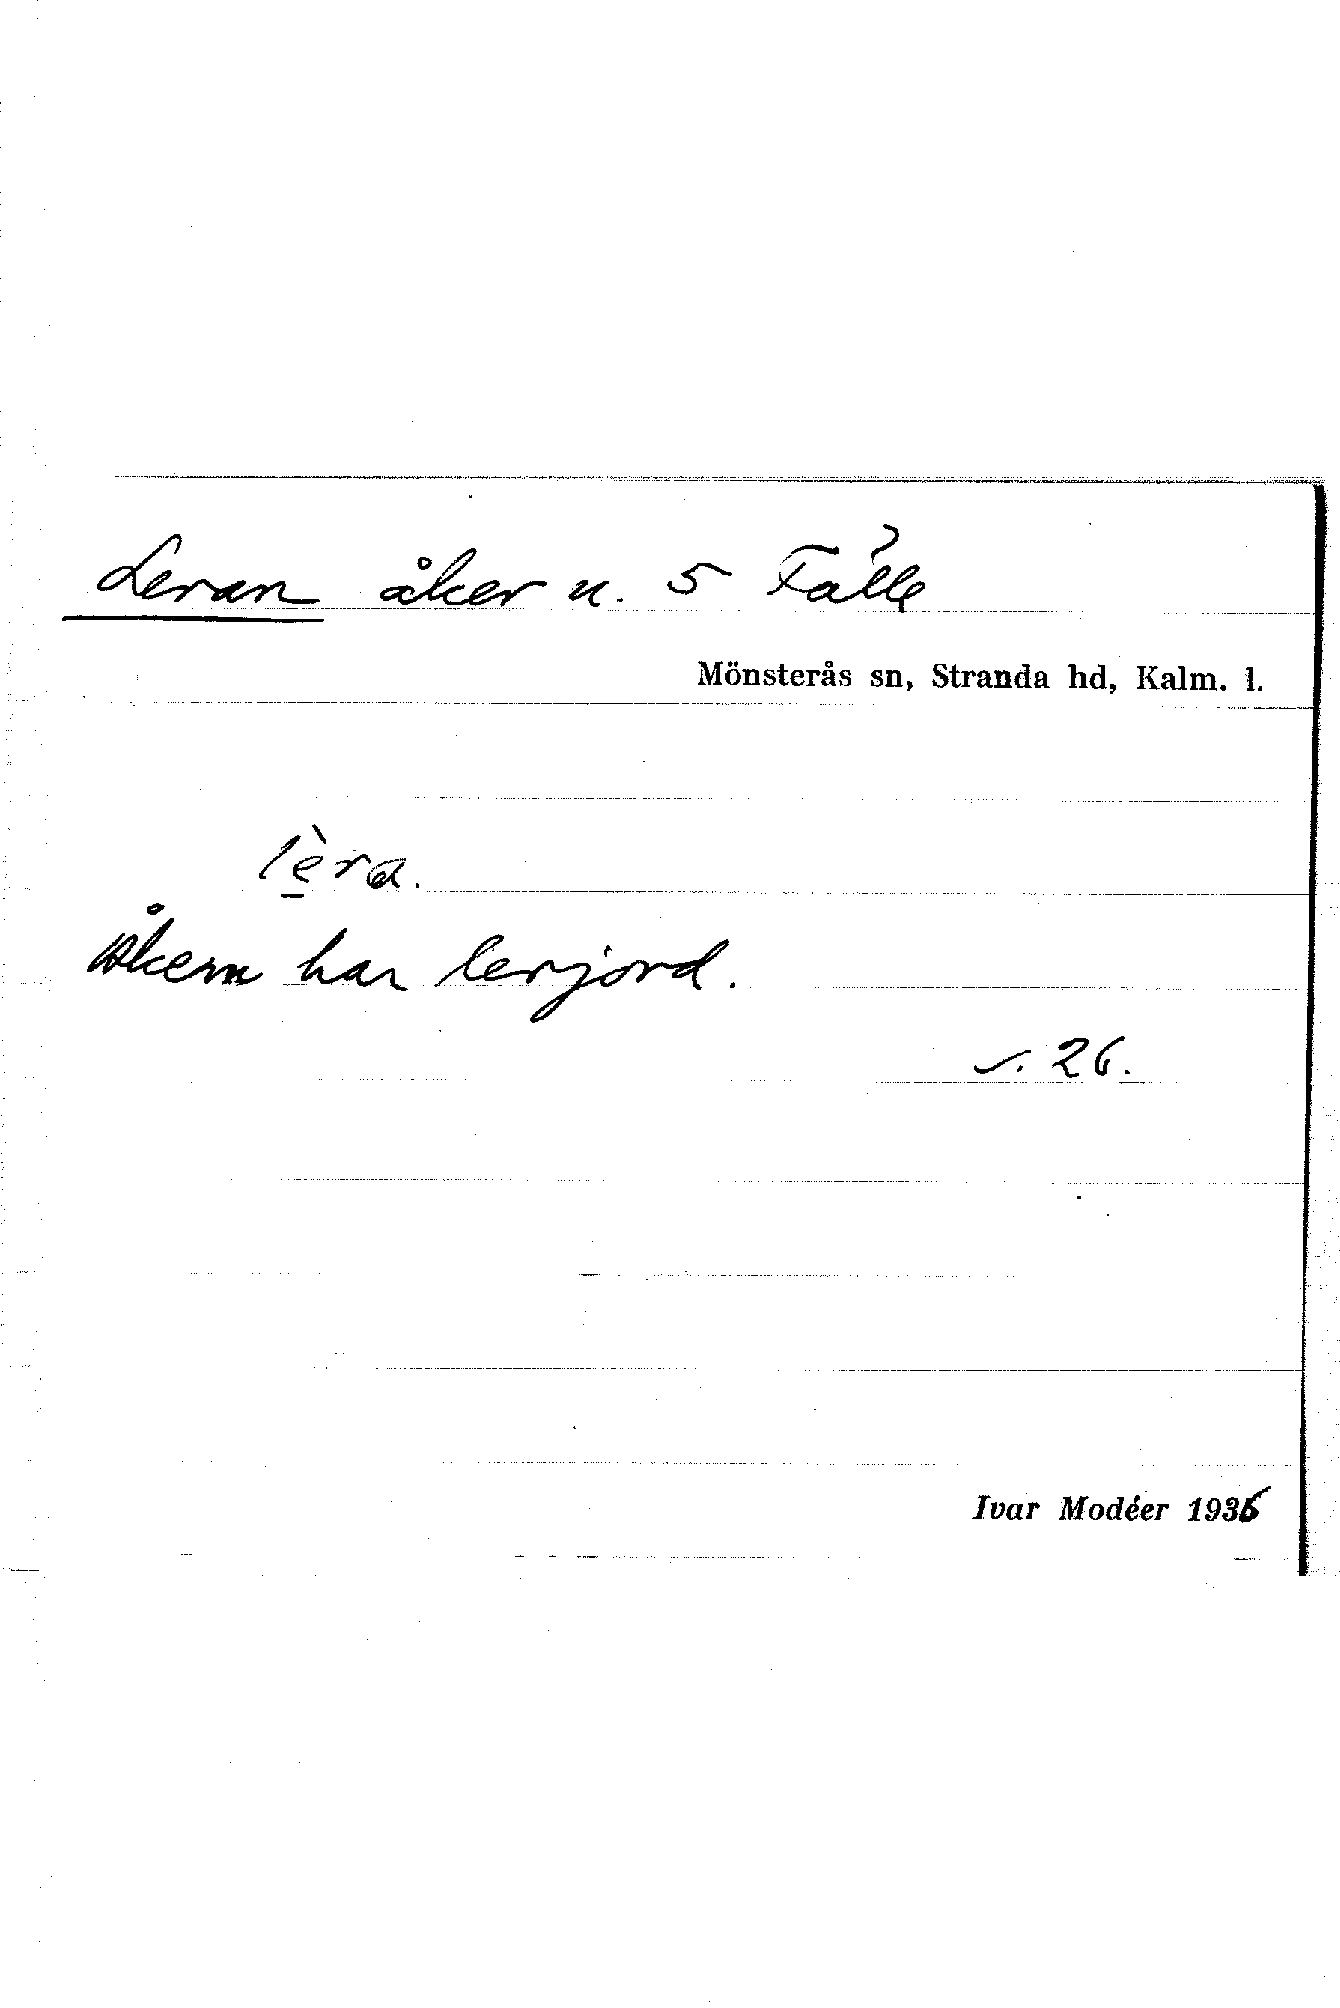 Leran åker u. 5 Fälle
Mönsterås sn, Stranda hd, Kalm. l.
lèra.
Åkern har lerjord.
s. 26.
Ivar Modéer 1936